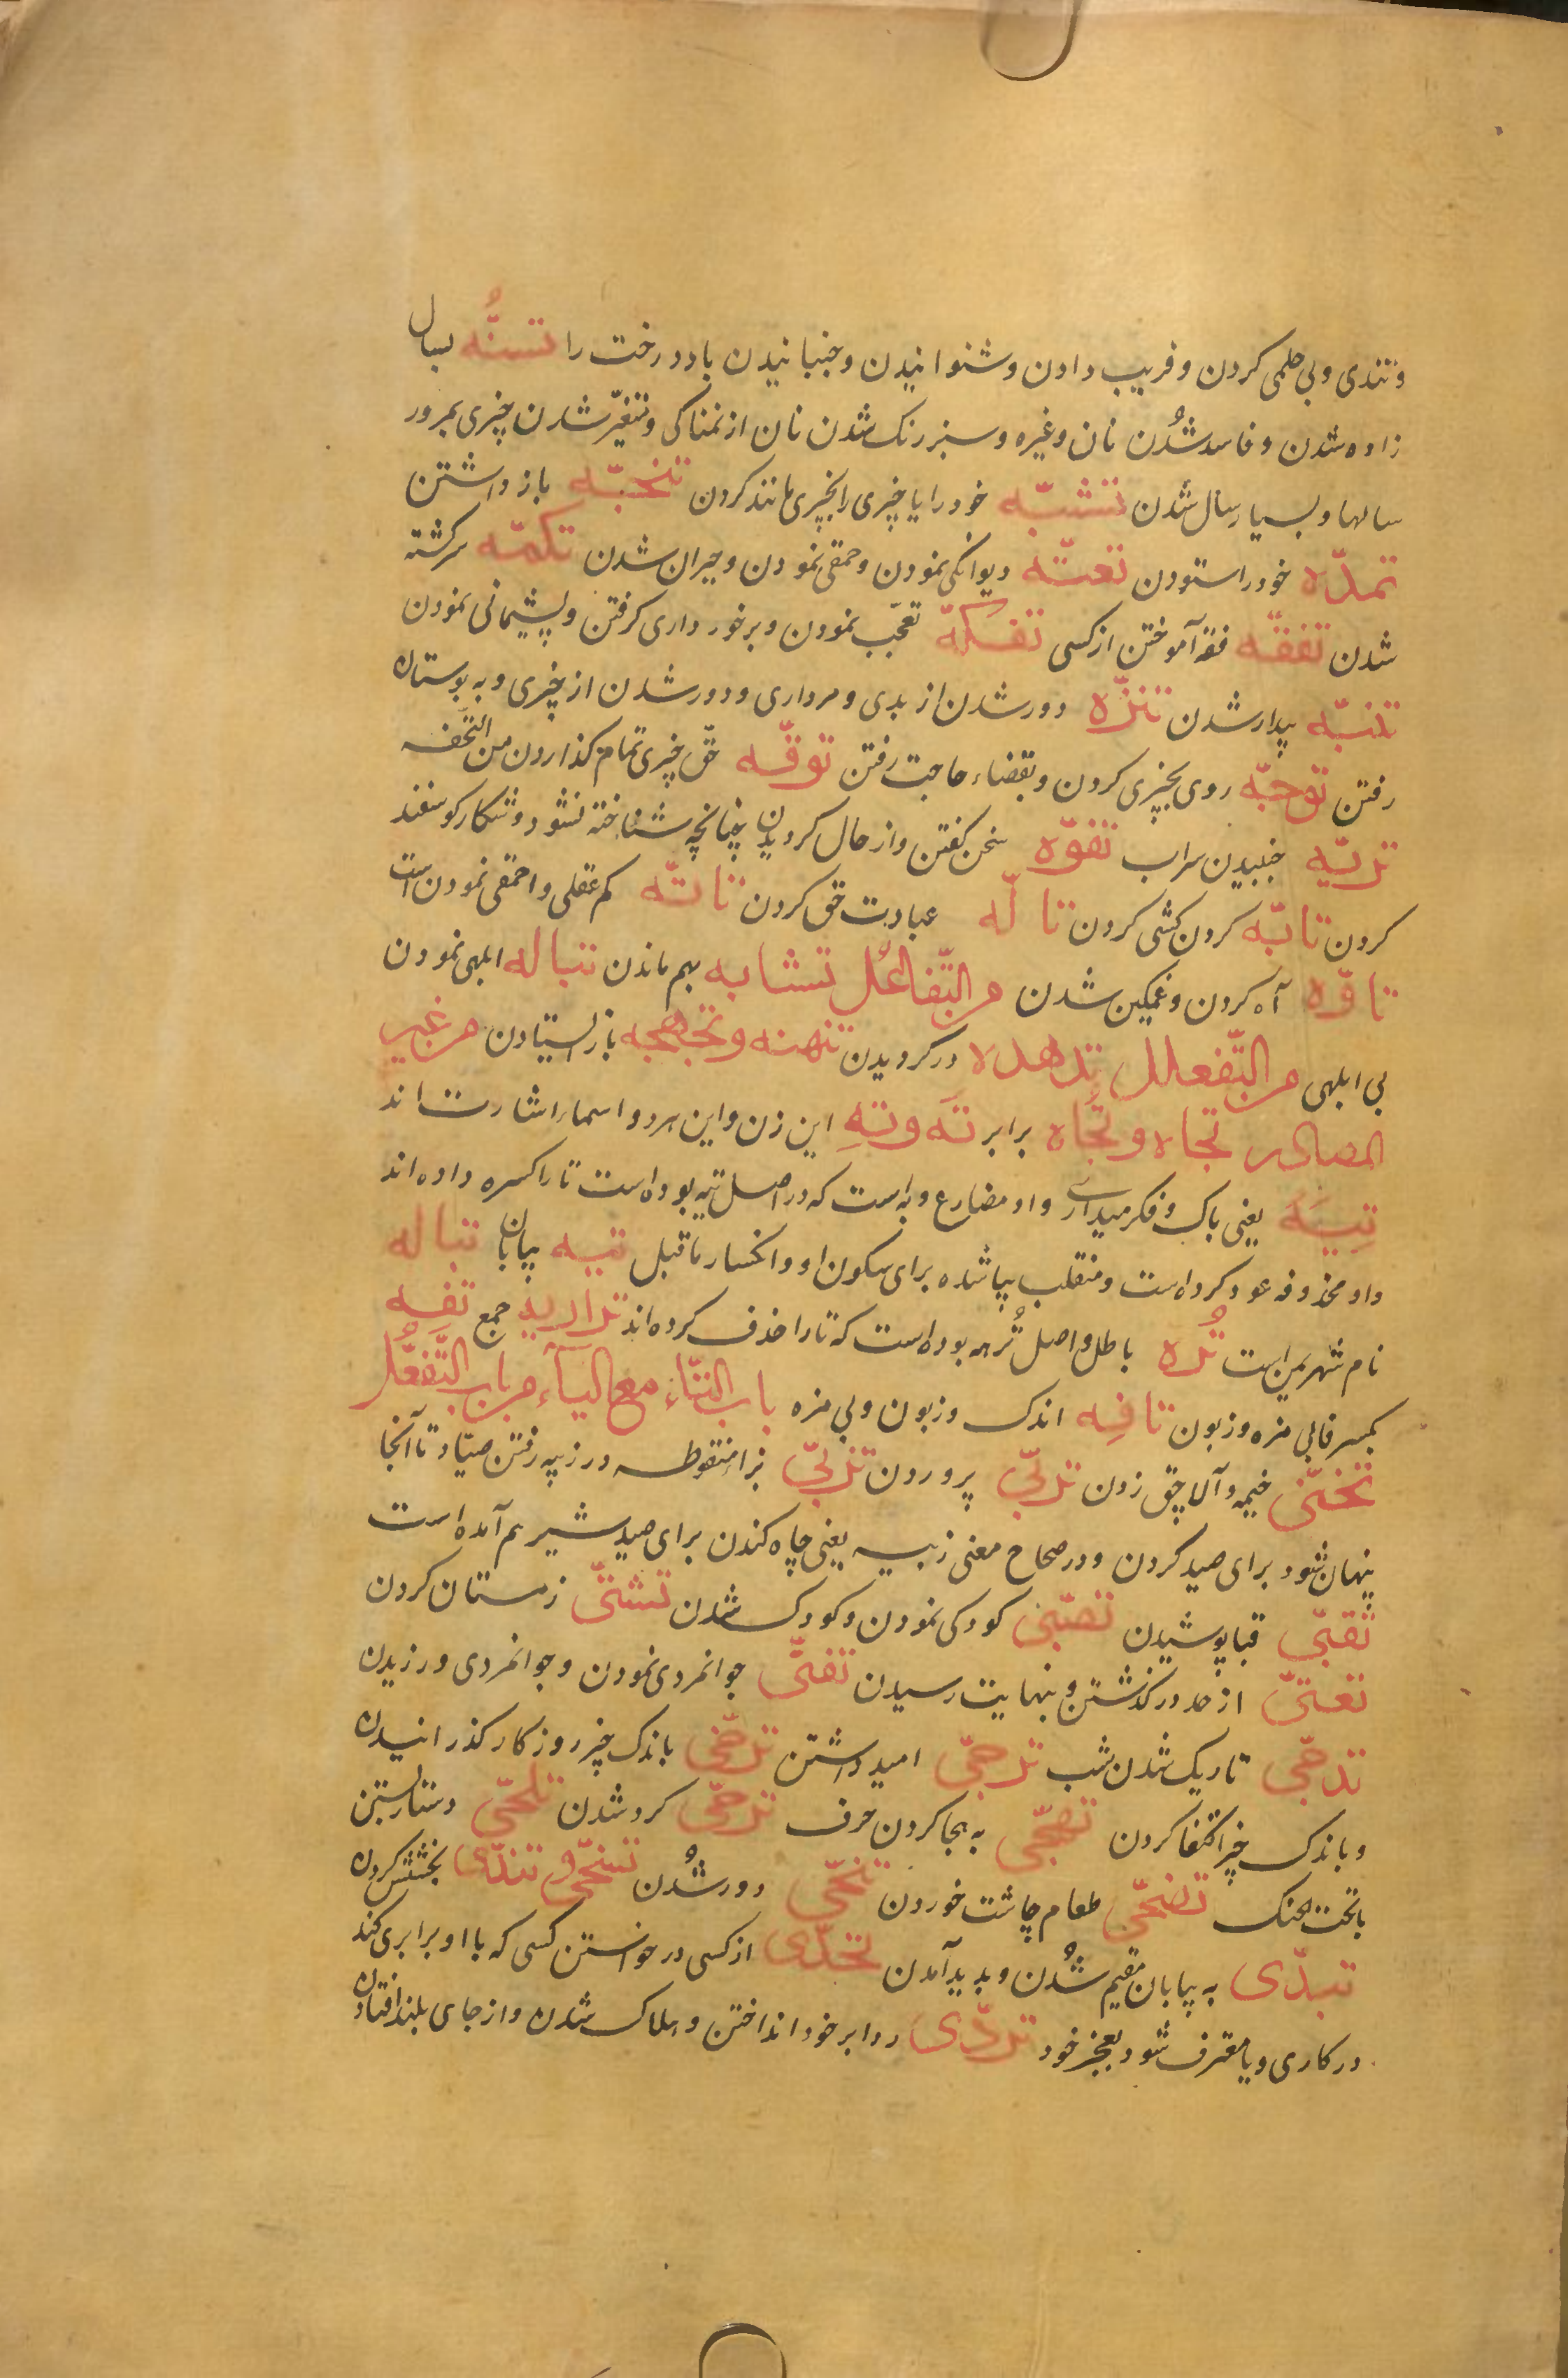 و تندی و بی حلمی کردن و فریب دادن و شنوانیدن و جنبانیدن باد درخت را تسنُّه بسال
زاده شدن و فاسد شُدن نان و غیره و سبز رنک شدن نان از نمناکی و متغیّر شدن چیزی بمرور
سالها و بسیار سال شدن تشبّه خود را یا چیزی را بچیزی مانند کردن باز داشتن
تمدّه خود را ستودن تعتّه دیوانکی نمودن و حمقی نمودن و حیران شدن تکمّه سرکشته
شدن تفقّه فقه آموختن از کسی تفکّه تعجّب نمودن و برخورداری کرفتن و پشیمانی نمودن
تنبّه بیدار شدن تنزّه دور شدن از بدی و مرداری و دور شدن از چیزی و به بوستان
رفتن توجّه روی بچیزی کردن و بقضاء حاجت رفتن توقّه حقّ چیزی تمام کذاردن من التحفه
تریّه جنبیدن سراب تفوّه سخن کفتن و از حال کردیدن چنانچه شناخته نشود و شکار کوسفند
کردن تابّه کردن کشی کردن تالّه عبادت حق کردن تاتّه کم عقلی و احمقی نمودن است
تاوّه آه کردن و غمکین شدن من التّفاعُل تشابه بهم ماندن تباله ابلهی نمودن
بی ابلهی من التّفعلل تدهده در کردیدن تنهنه و تجهجه باز ایستادن من غیر
المصادر تجاه و تُجاه برابر تَه و تِهِ این زن و این هر دو اسماء اشارت اند
تِیبَه یعنی باک و فکر میداری و او مضارع وبه است که در اصل تیبه بوده است تا را کسره داده اند
واو محذوفه عود کرده است و منقلب بیا شده برای سکون او و انکسار ماقبل تیه بیابان تباله
نام شهر یمن است تُره باطل و اصل تُرهه بوده است که تا را حذف کرده اند تراریه جمع تفِه
بکسر فا بی مزه و زبون تافِه اندک و زبون و بی مزه باب التّاء مع الیاء من باب التّفعُّل
تخبّی خیمه و آلاچق زدن تربّی پروردن تزبّی بزاء منقوطه در زبیه رفتن صیّاد تا آنجا
پنهان شود برای صید کردن و در صحاح معنی زبیه یعنی چاه کندن برای صید شیر هم آمده است
تقبّی قبا پوشیدن تصبّی کودکی نمودن و کودک شدن تشتّی زمستان کردن
تعتّی از حد درکذشتن و بنهایت رسیدن تفتّی جوانمردی نمودن و جوانمردی ورزیدن
تدجّی تاریک شدن شب ترجّی امید داشتن تزجّی باندک چیز روزکار کذرانیدن
و باندک چیز اکتفا کردن تهجّی به هجا کردن حرف ترحّی کرد شدن تلحّی دستار بستن
با تحت الحنک تضحّی طعام چاشت خوردن تنحّی دور شُدن تسخّی و تندّی بخشش کردن
تبدّی به بیابان مقیم شُدن و پدید آمدن تحدّی از کسی در خواستن کسی که با او برابری کند
در کاری و یا معترف شود بعجز خود تردّی ردا بر خود انداختن و هلاک شدن و از جای بلند افتادن